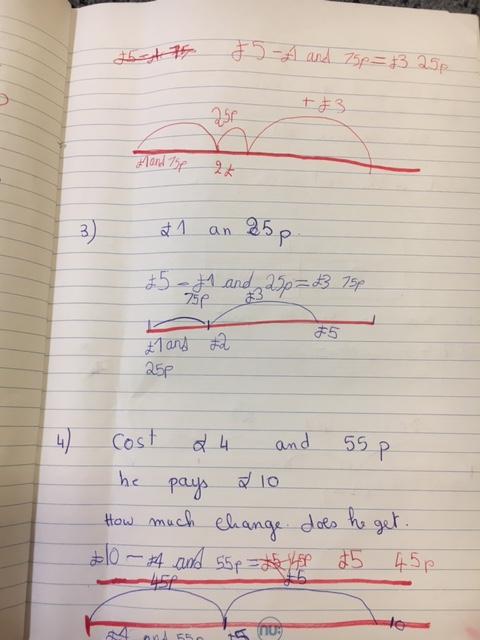 £5 - £1 75 £5 - £1 and 75p = £3 25p
25p + £3
£1 and 75p 2£
3) £1 an 25p
£5 - £1 and 25p = £3 75p
75p £3
£1 and £2 £5
25p
4) Cost £4 and 55p
he pays £10
How much change. does he get.
£10 - £4 and 55p = £5 45p £5 45p
45p £5
£4 and 55p £5 10